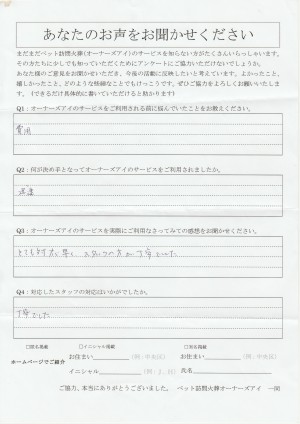 あなたのお声をお聞かせください
まだまだペット訪問火葬(オーナーズアイ)のサービスを知らない方がたくさんいらっしゃいます。
その方たちに少しでも知っていただくためにアンケートにご協力いただけないでしょうか。
あなた様のご意見をお聞かせいただき、今後の活動に反映したいと考えています。よかったこと、
嬉しかったこと、どのような些細なことでもけっこうです。ぜひご協力をよろしくお願いいたしま
す。(できるだけ具体的に書いていただけると助かります)
Q1:オーナーズアイのサービスをご利用される前に悩んでいたことをお教えください。
費用
Q2:何が決め手となってオーナーズアイのサービスをご利用されましたか。
Q3:オーナーズアイのサービスを実際にご利用なさってみての感想をお聞かせください。
とても対応が早く スタッフの方も丁寧でした
Q4:対応したスタッフの対応はいかがでしたか。
丁寧でした
□匿名掲載 □イニシャル掲載 □実名掲載
ホームページでご紹介
お住まい (例:中央区) お住まい (例:中央区)
イニシャル 氏名
ご協力、本当にありがとうございました。 ペット訪問火葬オーナーズアイ 一同